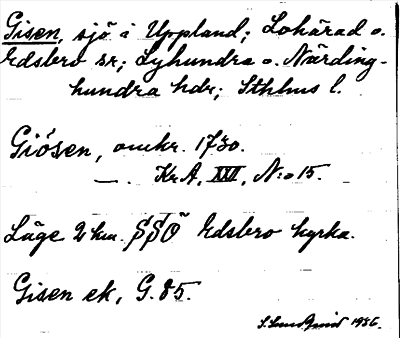 Gisen, sjö i Uppland; Lohärad o.
Edsbro sr; Lyhundra o. Närding-
hundra hdr; Sthlms l.
Giösen, omkr. 1730.
— . Kr.A. XXVI, N:o 15.
Läge 2 km. SSO Edsbro kyrka.
Gisen ek, G. 85.
1936.